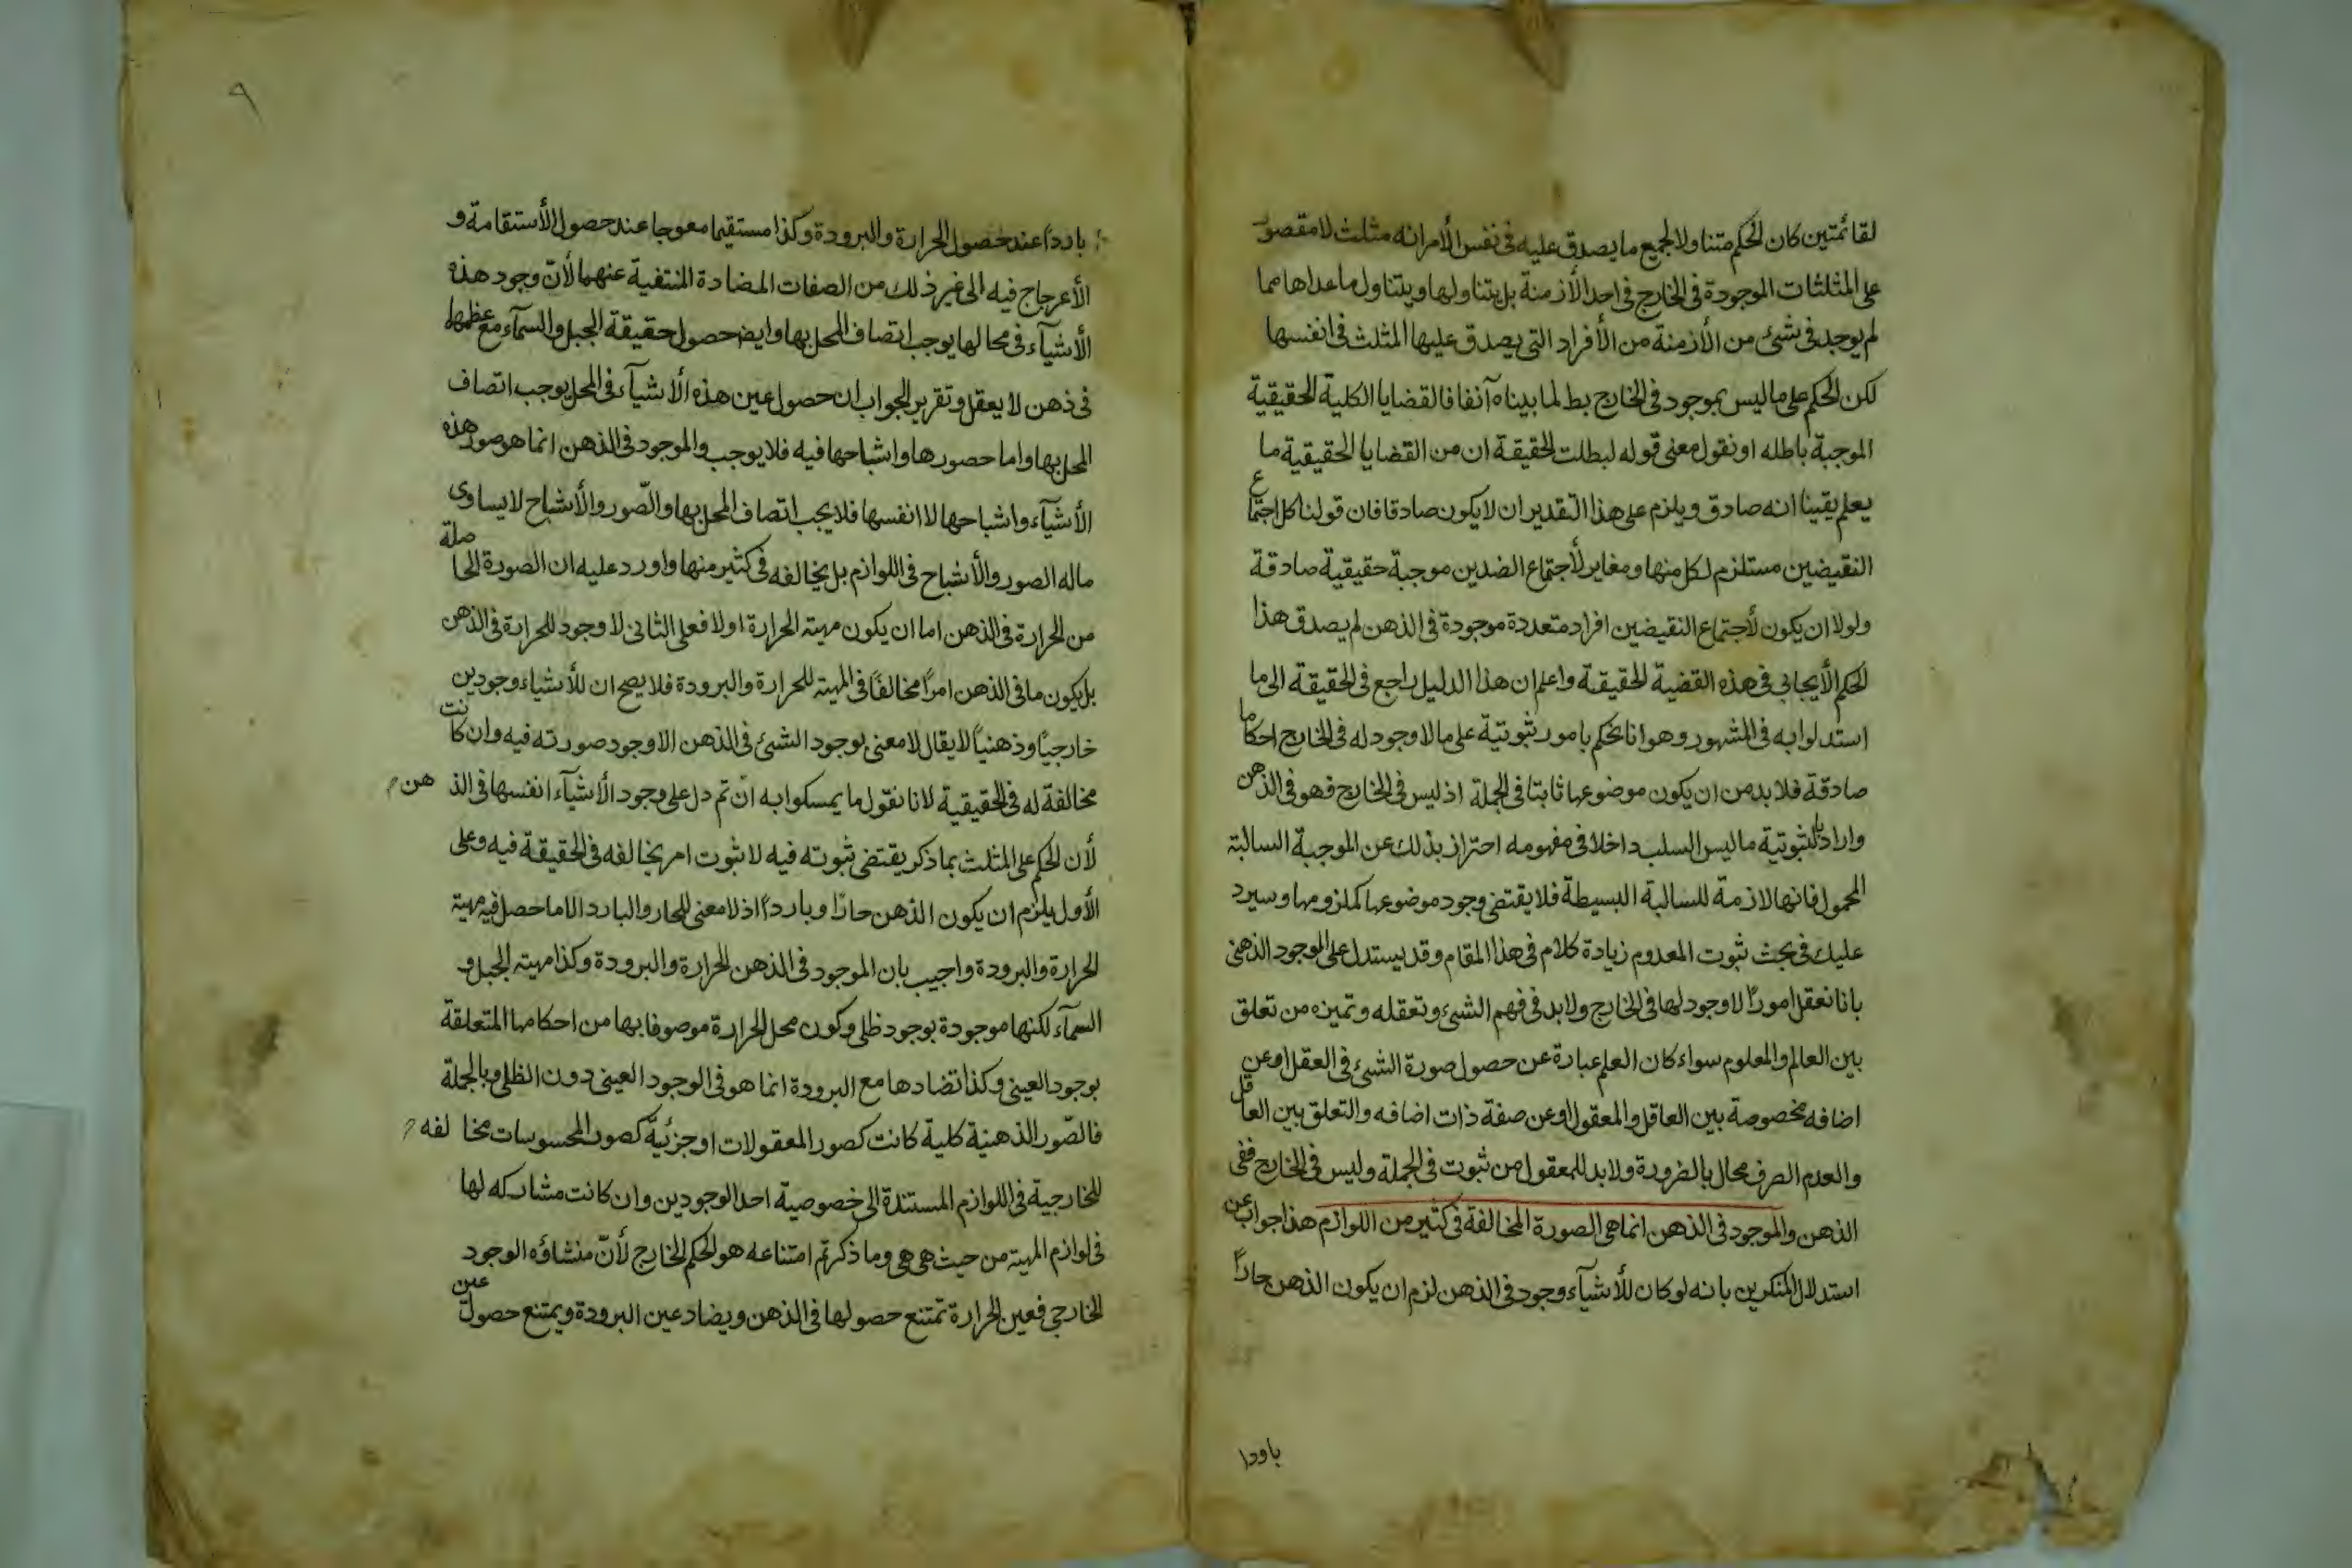 لقائمتين كان الحكم متناولا لجميع ما يصدق عليه في نفس الأمر انه مثلث لا مقصور
على المثلثات الموجودة في الخارج في احد الأزمنة بل يتناولها ويتناول ما عداها مما
لم يوجد في شئ من الأزمنة من الأفراد التي يصدق عليها المثلث في انفسها
لكن الحكم على ما ليس بموجود في الخارج بط لما بيناه آنفا فالقضايا الكلية الحقيقية
الموجبة باطله او نقول معنى قوله لبطلت الحقيقة ان من القضايا الحقيقية ما
يعلم يقينا انه صادق ويلزم على هذا التقدير ان لا يكون صادقا فان قولنا كل اجتماع
النقيضين مستلزم لكل منها ومغاير لأجتماع الضدين موجبة حقيقية صادقة
ولولا ان يكون لأجتماع النقيضين افراد متعددة موجودة في الذهن لم يصدق هذا
الحكم الأيجابي في هذه القضية الحقيقة واعلم ان هذا الدليل راجع في الحقيقة الى ما
استدلوا به في المشهور وهو انا نحكم بامور ثبوتية على ما لا وجود له في الخارج احكاما
صادقة فلا بد من ان يكون موضوعها ثابتا في الجملة اذ ليس في الخارج فهو في الذهن
واراد بالثبوتية ما ليس السلب داخلا في مفهومه احتراز بذلك عن الموجبة السالبة
المحمول فانها لازمة للسالبة البسيطة فلا يقتضى وجود موضوعها كملزومها وسيرد
عليك في بحث ثبوت المعدوم زيادة كلام في هذا المقام وقد يستدل على الموجود الذهنى
بانا نعقل امورًا لا وجود لها في الخارج ولا بد في فهم الشئ وتعقله وتميزه من تعلق
بين العالم والمعلوم سواء كان العلم عبارة عن حصول صورة الشئ في العقل او عن
اضافه مخصوصة بين العاقل والمعقول او عن صفة ذات اضافه والتعلق بين العاقل
والعدم الصرف محال بالضرورة ولا بد للمعقول من ثبوت في الجملة وليس في الخارج ففى
الذهن والموجود في الذهن انما هى الصورة المخالفة في كثير من اللوازم هذا جواب عن
استدلال المنكرين بانه لو كان للأشيآء وجود في الذهن لزم ان يكون الذهن حارًا
باردا
٩
باردًا عند حصول الحرارة والبرودة وكذا مستقيما معوجا عند حصول الأستقامة و
الأعرجاج فيه الى غير ذلك من الصفات المضادة المنتفية عنهما لأنّ وجود هذه
الأشيآء في محالها يوجب اتصاف المحل بها وايض حصول حقيقة الجبل والسمآء مع عظمها
في ذهن لا يعقل وتقرير الجواب ان حصول عين هذه الأشيآء في المحل يوجب اتصاف
المحل بها واما حصورها واشباحها فيه فلا يوجب والموجود في الذهن انما هو صور هذه
الأشيآء واشباحها لا انفسها فلا يجب اتصاف المحل بها والصّور والأشباح لا يساوى
ماله الصور والأشباح في اللوازم بل يخالفه في كثير منها واورد عليه ان الصورة الحاصلة
من الحرارة في الذهن اما ان يكون مهيته الحرارة او لا فعلى الثانى لا وجود للحرارة في الذهن
بل يكون ما في الذهن امرًا مخالفًا في المهيته للحرارة والبرودة فلا يصح ان للأشياء وجودين
خارجيًا وذهنيًا لا يقال لا معنى لوجود الشئ في الذهن الا وجود صورته فيه وان كانت
مخالفة له في الحقيقية لانا نقول ما يمسكوا به انْ تم دل على وجود الأشيآء انفسها في الذهن
لأن الحكم على المثلث بما ذكر يقتضى ثبوته فيه لا ثبوت امر يخالفه في الحقيقة فيه وعلى
الأول يلزم ان يكون الذهن حارًا وباردًا اذ لا معنى للحار والبارد الا ما حصل فيه مهيته
الحرارة والبرودة واجيب بان الموجود في الذهن للحرارة والبرودة وكذا مهيته الجبل و
السمآء لكنها موجودة بوجود ظلى وكون محل الحرارة موصوفا بها من احكامها المتعلقة
بوجود العينى وكذا تضادها مع البرودة انما هو في الوجود العينى دون الظلى وبالجملة
فالصّور الذهنية كلية كانت كصور المعقولات او جزئيةً كصور المحسوسات مخالفه
للخارجية في اللوازم المستندة الى خصوصية احد الوجودين وان كانت مشاركه لها
في لوازم المهيته من حيث هى هى وما ذكرتم امتناعه هو الحكم الخارج لأنّ منشاؤه الوجود
الخارجى فعين الحرارة تمتنع حصولها في الذهن ويضاد عين البرودة ويمتنع حصول عين